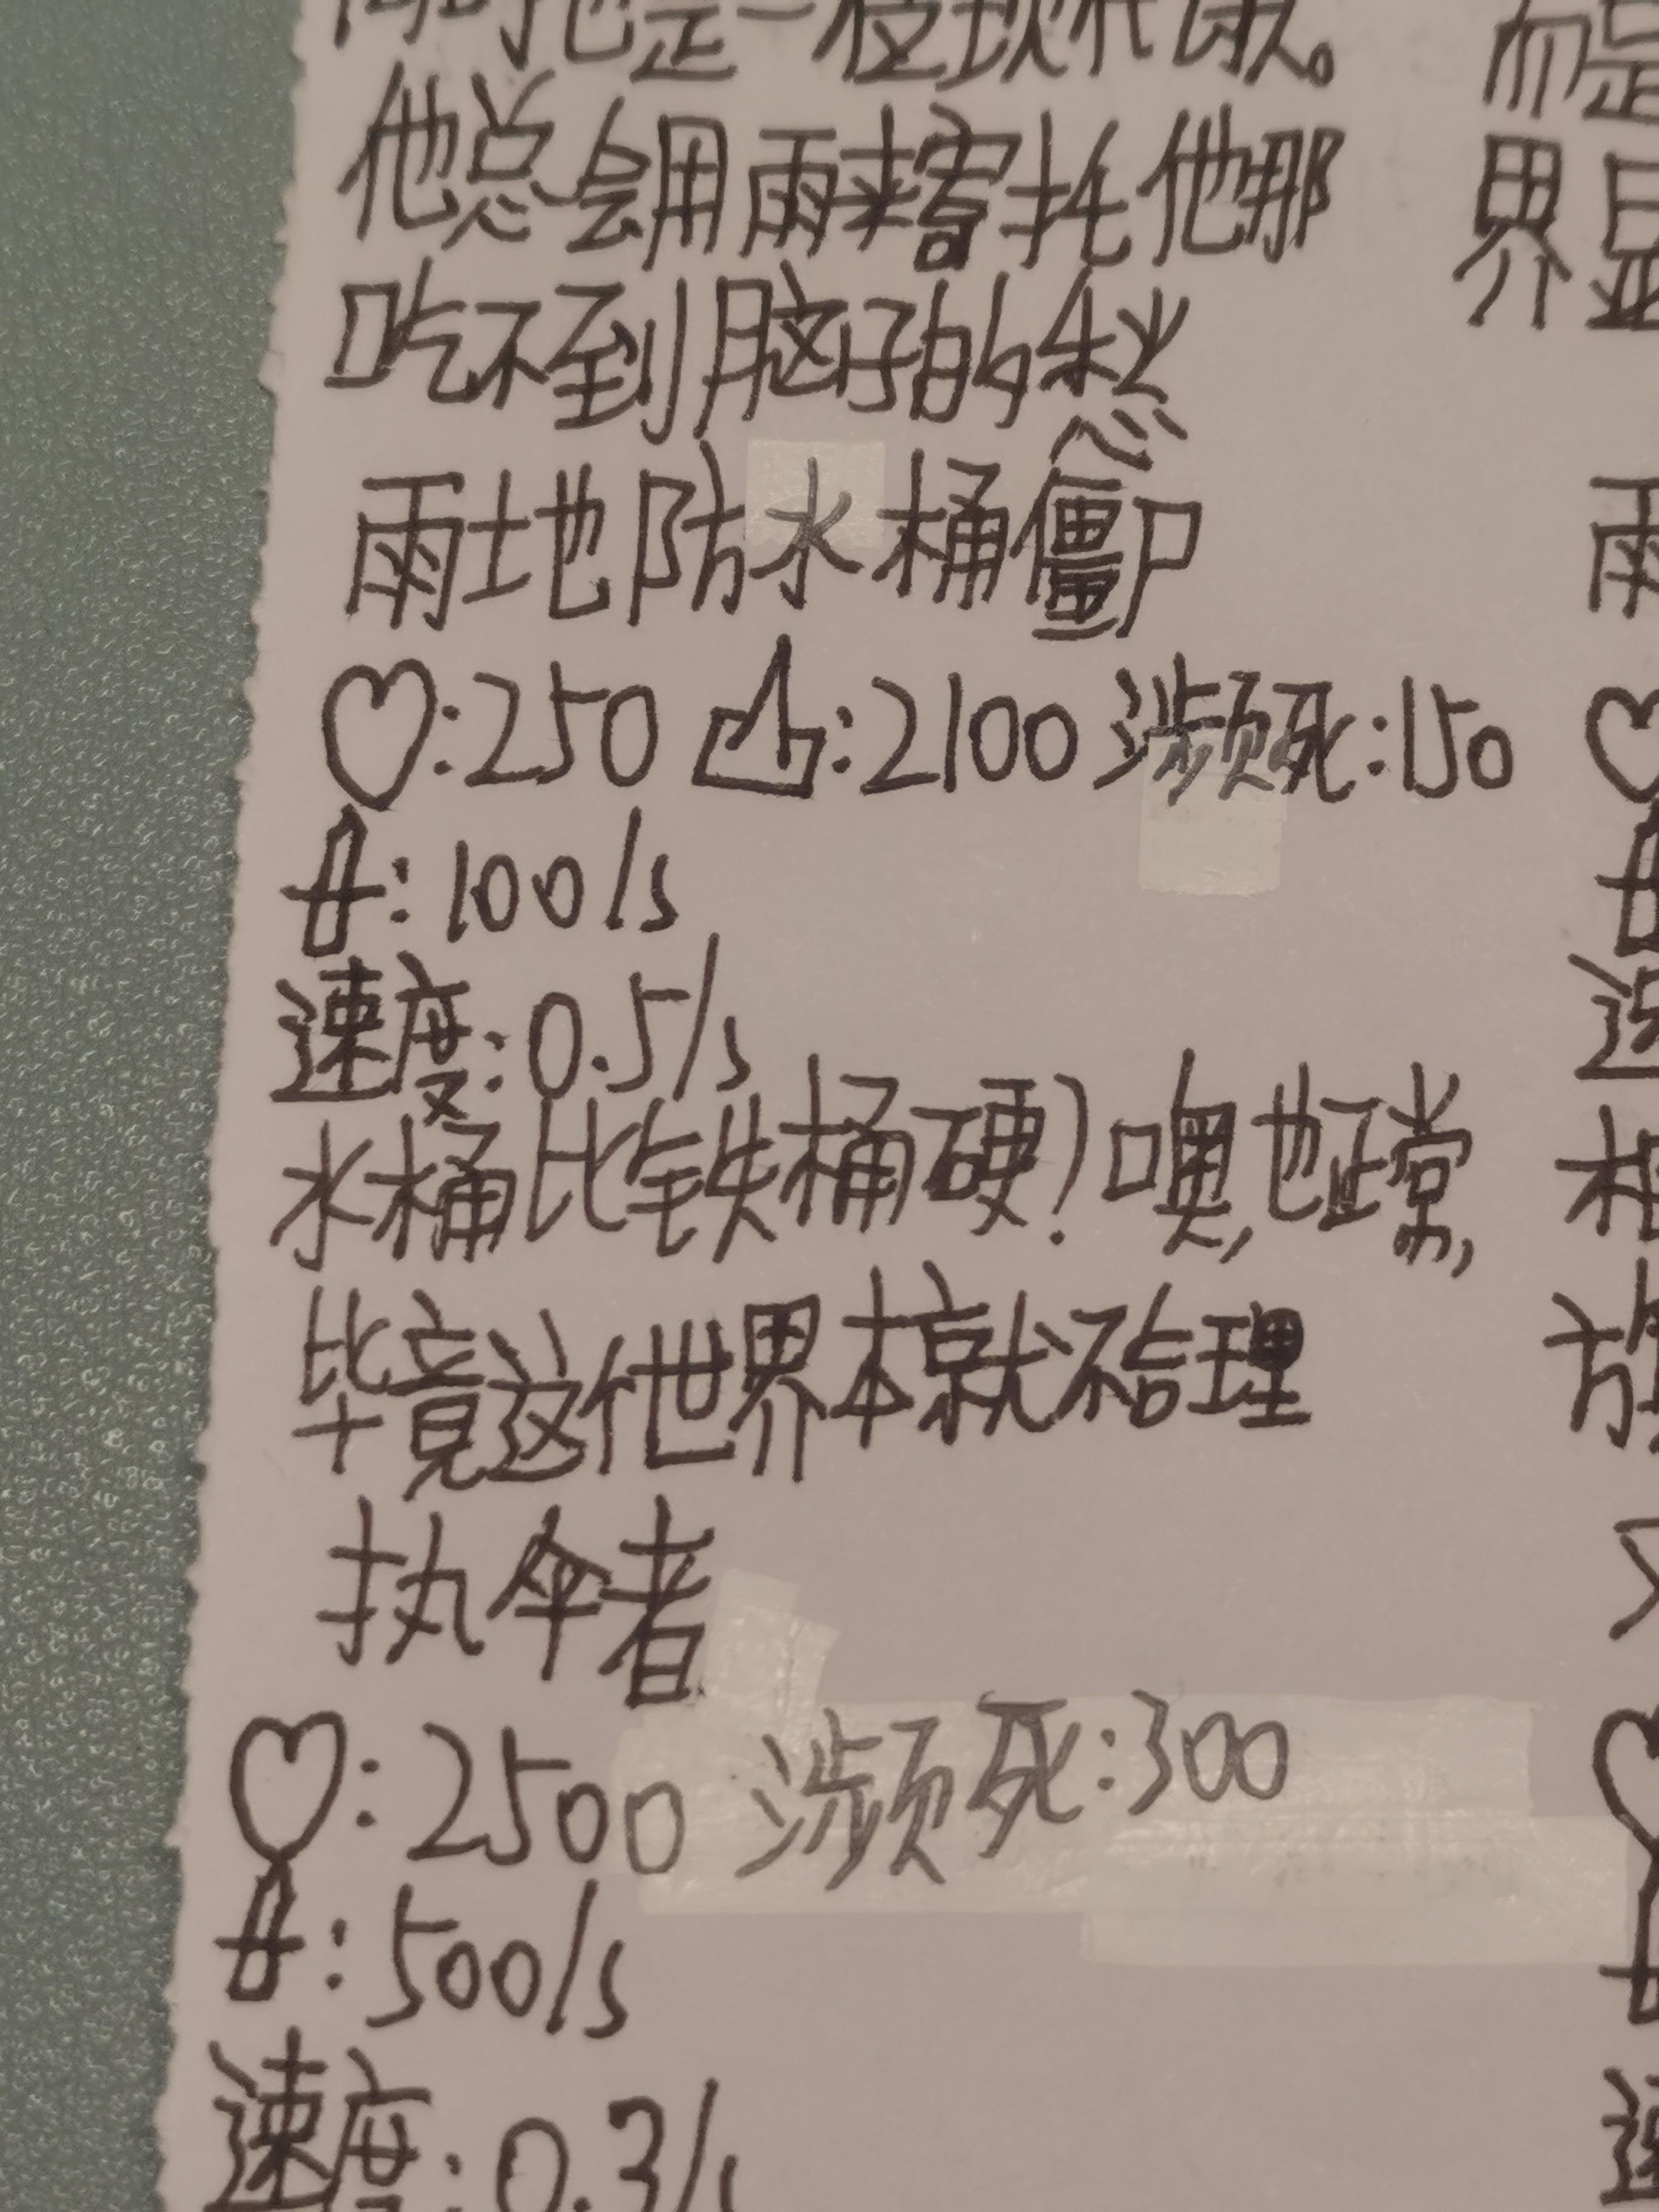 他总会用雨来寄托他那
吃不到脑子的愁
雨地防水桶僵尸
♡:250 凸:2100 濒死:150
:100/s
速度:0.5/s
水桶比铁桶硬?噢,也正常,
毕竟这个世界本就不合理
执伞者
♡:2500 濒死:300
:500/s
速度:0.3/s
而是
界显
雨
♡
速
方
♡
速